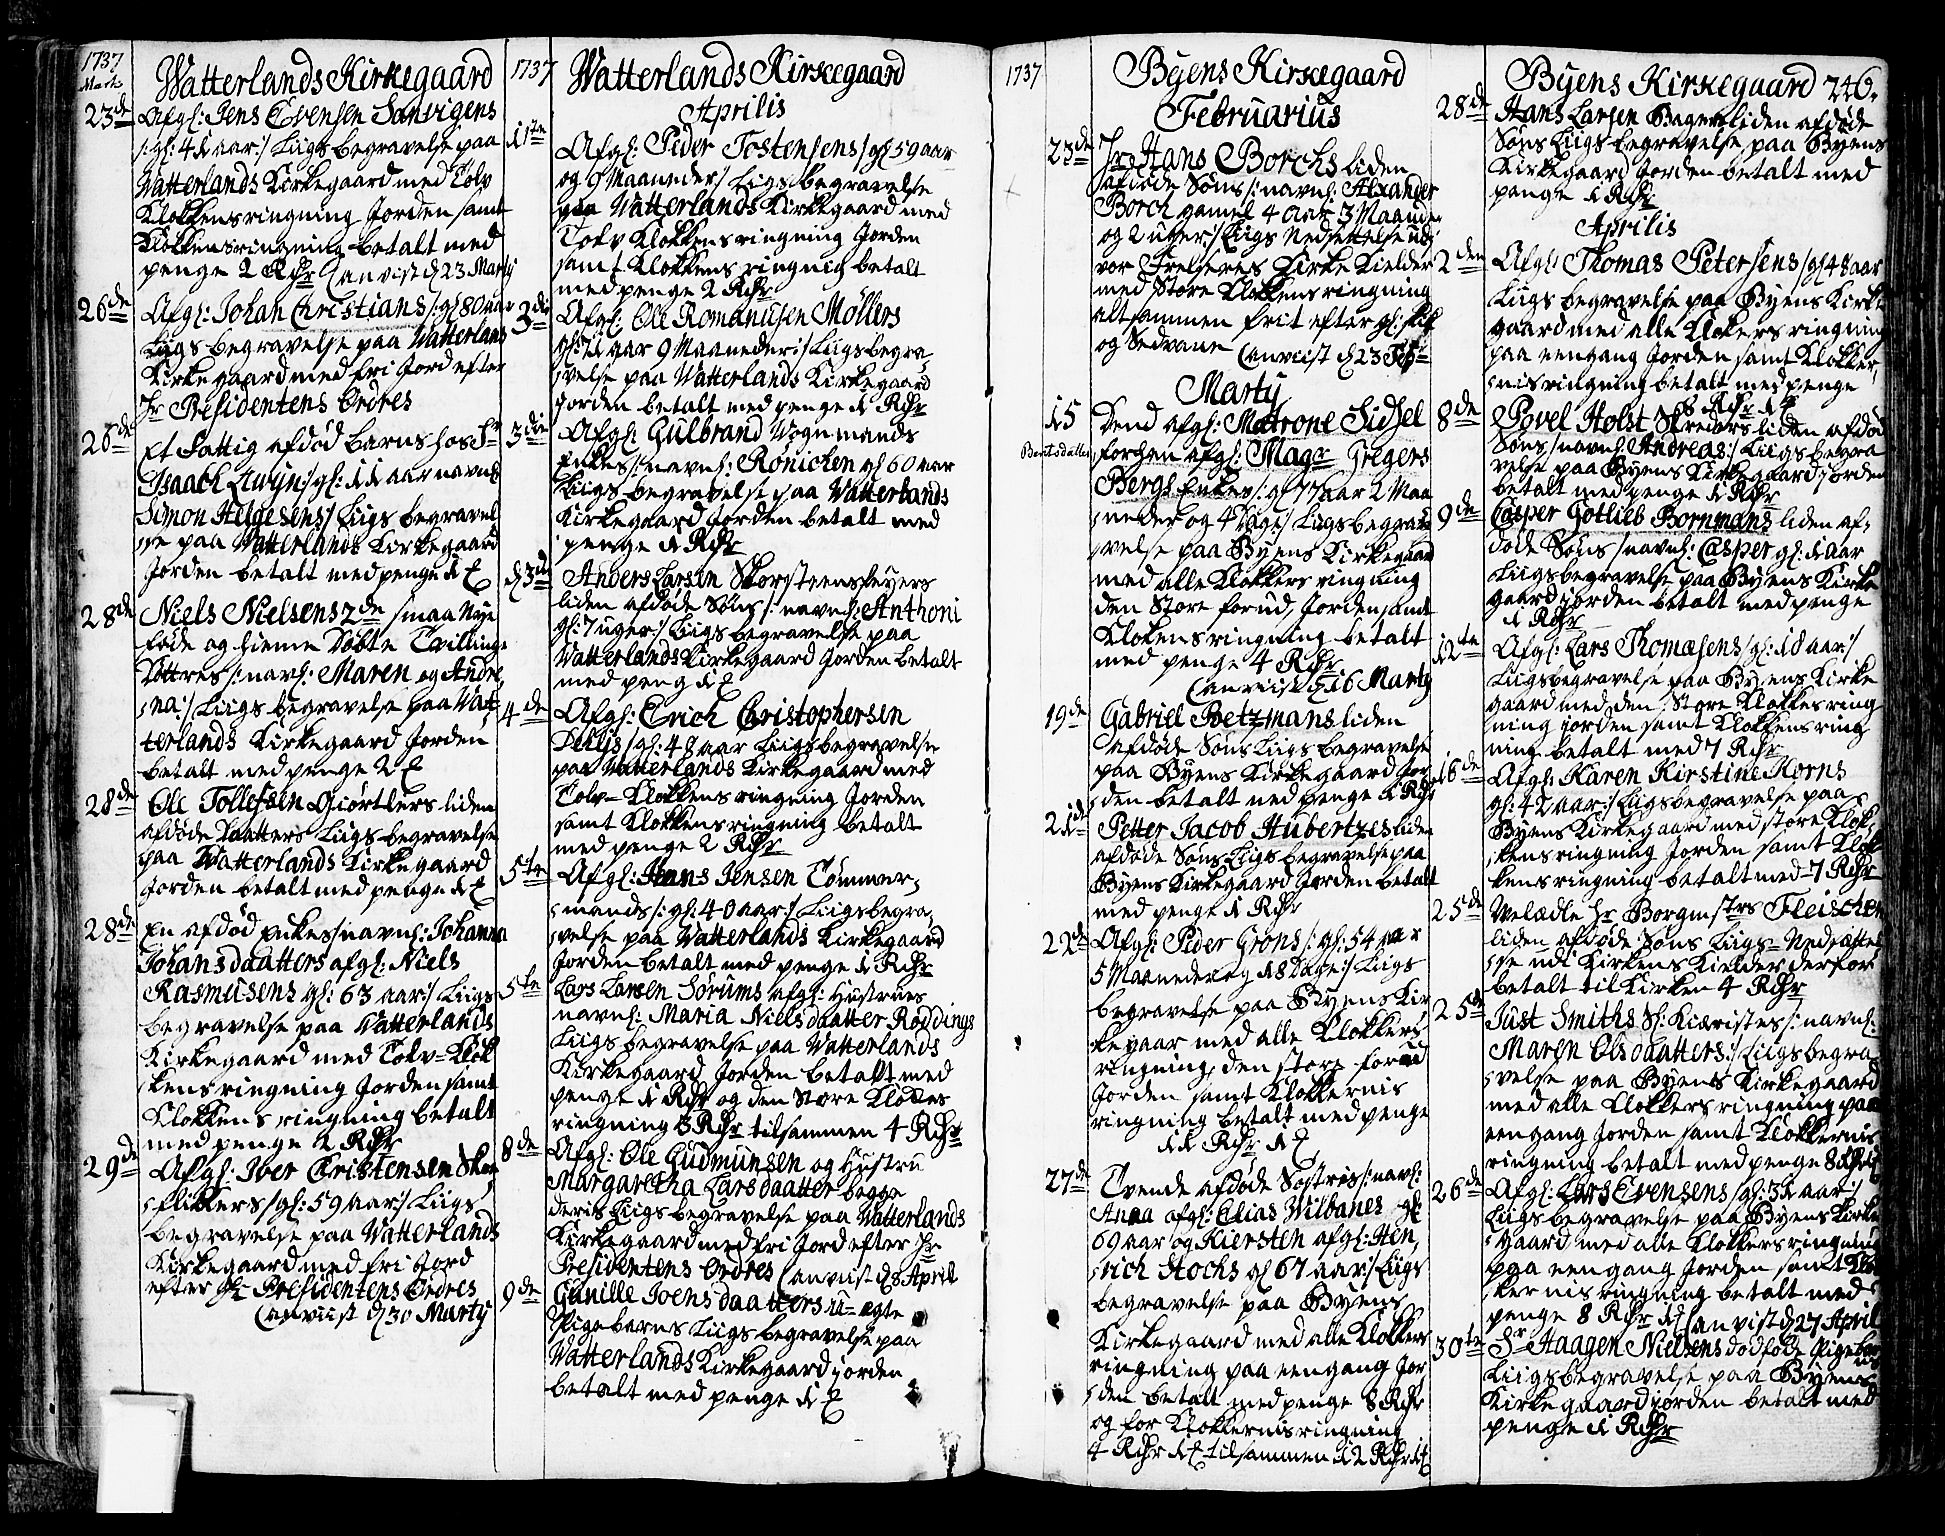 1737
Marti
Watterlands Kirkegaard
23de Afgl: Jens Evensen Sanvigens
/:gl: 41 aar:/ Liigs begravelse paa
Watterlands Kirkegaard med Tolv
Klokkens ringning Jorden samt
Klokkens ringning betalt med
penge 2 Rdr (anvist d 23 Marty
26de Afgl: Johan Christians /:gl 80 aar
Liigs begravelse paa Watterlands
Kirke gaard med fri Jord efter
Hr Presidentens Ordres
26de Et Fattig afdød barns hos Sr
Isaach Lwyn /:gl: 11 aar navnl
Simon Helgesens/ Liigs begravel
se paa Watterlands Kirkegaard
Jorden betalt med penge 1
28de Niels Nielsens 2de smaa Nye
føde og hieme døbte Tvillinge
Døttres /: navnl: Maren og Andre,
na:/ Liigs begravelse paa Wat,
terlands Kirkegaard Jorden
betalt med penge 2
28de Ole Tollefsen Giørtlers liden
afdøde Daatters Liigs begravelse
paa Watterlands Kirkegaard
Jorden betalt med penge 1
28de En afdød Enkes /navnl: Johanna
Johansdaatters afgl: Niels
Rasmusens gl: 63 aar:/ Liigs
begravelse paa Watterlands
Kirkegaard med Tolv=Klok
kens ringning Jorden samt
Klokkens ringning betalt
med penge 2 Rdr
29de Afgl: Iver Christensen Skoe
flikkers /gl: 59 aar:/ Liigs
begravelse paa Watterlands
Kirkegaard med fri Jord
efter Hr Presidentens Ordres
(anviist d 30 Marty
1737 Watterlands Kirkegaard
Aprilis
1ste Afgl: Peder Tostensens /gl 59 aar
og 9 Maaneder/ Liigs begravelse
paa Watterlands Kirkegaard med
Tolv Klokkens ringning Jorden
samt Klokkens ringnig betalt
med penge 2 Rdr
3die Afgl: Ole Romanusen Möllers
gl: 71 aar 9 Maaneder:/ Liigs begra,
velse paa Watterlands Kirkegaard
Jorden betalt med penge 1 Rdr
3die Afgl: Gulbrand Vognmands
Enkes /: navnl: Ronichen gl 60 aar
Liigs begravelse paa Watterlands
Kirkegaard Jorden betalt med
penge 1 Rdr
d 3die Anders Larsen Skorsteensfeyers
liden afdøde Søns /: navnl: Anthoni
gl: 7 uger:/ Liigs begravelse paa
Watterlands Kirkegaard Jorden betalt
med peng 1
4de Afgl: Erich Christophersen
/gl: 48 aar Liigs begravelse
paa Watterlands Kirkegaard med
Tolv=Klokkens ringning Jorden
samt Klokkens ringning betalt
med penge 2 Rdr
5te Afgl: Hans Jensen Tømmer,
mands /: gl: 40 aar:/ Liigs begra,
velse paa Watterlands Kirkegaard
Jorden betalt med penge 1 Rdr
5te Lars Larsen Sørums afgl: Hustrues
navnl: Maria Nielsdaatter Røddings
Liigs begravelse paa Watterlands
Kirkegaard Jorden betalt med
penge 1 Rdr og den Store Klokes
ringning 3 Rdr tilsammen 4 Rdr
8de Afgl: Ole Gudmunsen og Hustru
Margaretha Larsdaatter begge
deris Liigs begravelse paa Watterlands
Kirkegaard med fri Jord efter Hr
Presidentens Ordres (anviist d 8 April
9de Gunille Joensdaatters u=ægte
Pigebarns Liigs begravelse paa
Watterlands Kirkegaard jorden
betalt med penge 1
1737 Byens Kirkegaard
Februarius
23de Hr Hans Borchs liden
afdøde Søns /: navnl: Alxander
Borch gamel 4 aar 3 Maaneder
og 2 uger:/ Liigs Nedsettelse udi
vor Frelseres Kirke Kielder
med Store Klokkens ringning
alt sammen frit efter gl: skik
og Sedvane (anviist d 23 Febr
Marty
15 Dend afgl: Matrone Sidsel
Bentsdatter
forhen afgl: Magr Gregers
Bergs Enkes /: gl 77 aar 2 Maa
neder og 4 Dage:/ Liigs begra
velse paa Byens Kirkegaard
med alle Klokkers ringning
den Store forud, Jorden samt
Klokens ringning betalt
med penge 4 Rdr
(anviist d 16 Marty
19de Gabriel Betzmans liden
afdøde Søns Liigs begravelse
paa Byens Kirkegaard Jor
den betalt med penge 1 Rdr
21de Petter Jacob Hubertzes liden
afdøde Søns Liigs begravelse paa
Byens Kirkegaard Jorden betalt
med penge 1 Rdr
22de Afgl: Peder Grons /: gl: 54 aar
5 Maaneder og 18 Dage:/ Liigs
begravelse paa Byens Kir
kegaar med alle Klokkers
ringning, den store forud
Jorden samt Klokkernis
ringning betalt med penge
11 Rdr 1
27de Tvende afdøde Søstres /: navnl:
Anna afgl: Elias Wilbanes gl:
69 aar og Kiersten afgl: Hen,
rich Hochs gl 67 aar:/ Liigs
begravelse paa Byens
Kirkegaard med alle Klokkers
ringning paa eengang Jor
den betalt med penge 8 Rdr
og for Klokkernis ringning
4 Rdr 1 tilsammen 12 Rdr 1
Byens Kirkegaard 246.
28de Hans Larsen Bagers liden afdøde
Søns Liigs begravelse paa Byens
Kirkegaard Jorden betalt med
penge 1 Rdr
Aprilis
2den Afgl: Thomas Petersens /gl 48 aar
Liigs begravelse paa Byens Kirke
gaard med alle Klokers ringning
paa eengang Jorden samt Klokker,
nis ringning betalt med penge
8 Rdr 1
8de Povel Holst Skreders liden afdøde
Søns /navnl: Andreas:/ Liigs begra
velse paa Byens Kirkegaard jorden
betalt med penge 1 Rdr
9de Casper Gotlieb Bornmans liden af,
døde Søns /navnl: Casper gl: 1 aar
Liigs begravelse paa Byens Kirke
gaard jorden betalt med penge
1 Rdr
12te Afgl: Lars Thomæsens /gl: 18 aar:/
Liigs begravelse paa Byens Kirke
gaard med den Store Klokkes ring
ning jorden samt Klokkens ring
ning betalt med 7 Rdr
16de Afgl: Karen Kirstine Korns
gl: 42 aar:/ Liigs begravelse paa
Byens Kirkegaard med store Klok,
kens ringning Jorden samt Klok
kens ringning betalt med 7 Rdr
25de Velædle Hr Borgmstrs Fleischer
liden afdøde Søns Liigs=Nedsættel
se udi Kirkens Kielder derfor
betalt til Kirken 4 Rdr
25de Just Smiths Sl: Kiæristes /: navnl:
Maren Olsdaatters:/ Liigs begra,
velse paa Byens Kirkegaard
med alle Klokkers ringning paa
eengang Jorden samt Klokkernis
ringning betalt med penge 8 Rdr 1
26de Afgl: Lars Evensens /gl: 31 aar:/
Liigs begravelse paa Byens Kirke
gaard med alle Klokkers ringning
paa een gang Jorden samt Klok
kernis ringning betalt med
penge 8 Rdr 1 (anvist d 27 April
30te Sr Haagen Nielsens dødføde Pigebarns
Liigs begravelse paa Byens
Kirkegaard jorden betalt med
penge 1 Rdr